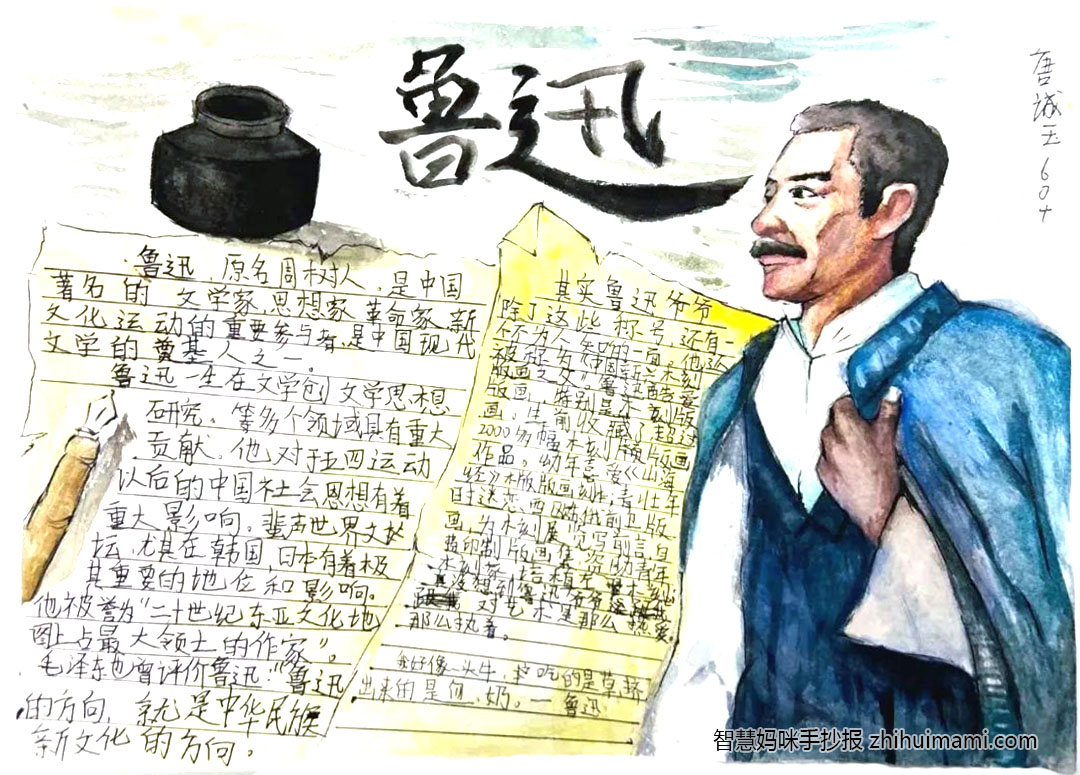 鲁迅
唐诚玉 604
鲁迅,原名周树人,是中国
著名的文学家,思想家,革命家,新
文化运动的重要参与者,是中国现代
文学的奠基人之一。
鲁迅一生在文学创文学思想
研究,等多个领域具有重大
贡献,他对于五四运动
以后的中国社会思想有着
重大影响。蜚声世界文
坛,尤其在韩国,日本有着极
其重要的地位和影响。
他被誉为"二十世纪东亚文化地
图上占最大领土的作家"。
毛泽东也曾评价鲁迅:"鲁迅
的方向,就是中华民族
新文化的方向。
其实鲁迅爷爷
除了这些称号,还有一
个不为人知的一面,他还
被誉为《中国新兴木刻
版画之父》鲁迅酷爱
版画,特别是木刻版
画,生前收藏了超过
2000多幅木刻版画
作品。幼年忌爱《山海
经》木版版画;青壮年
时迷恋西欧俄前卫版
画,为木刻展
对艺术是那么热爱,
那么执着。
我好像一头牛,吃的是草,挤
出来的是血,奶。一鲁迅
智慧妈咪手抄报 zhihuimami.com